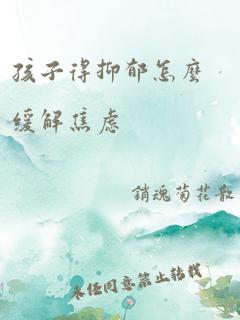 孩子得抑郁怎麼
缓解焦虑
銷魂菊花散
未经同意禁止转载